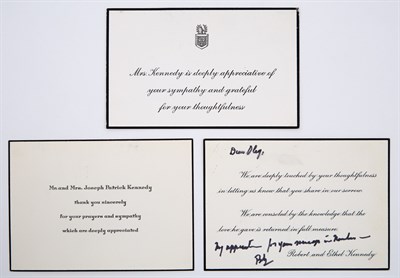 Mrs Kennedy is deeply appreciative of
your sympathy and grateful
for your thoughtfulness
Mr. and Mrs. Joseph Patrick Kennedy
thank you sincerely
for your prayers and sympathy
which are deeply appreciated
Dear
We are deeply touched by your thoughtfulness
in letting us know that you share in our sorrow.
We are consoled by the knowledge that the
love he gave is returned in full measure.
Robert and Ethel Kennedy
My for your message in